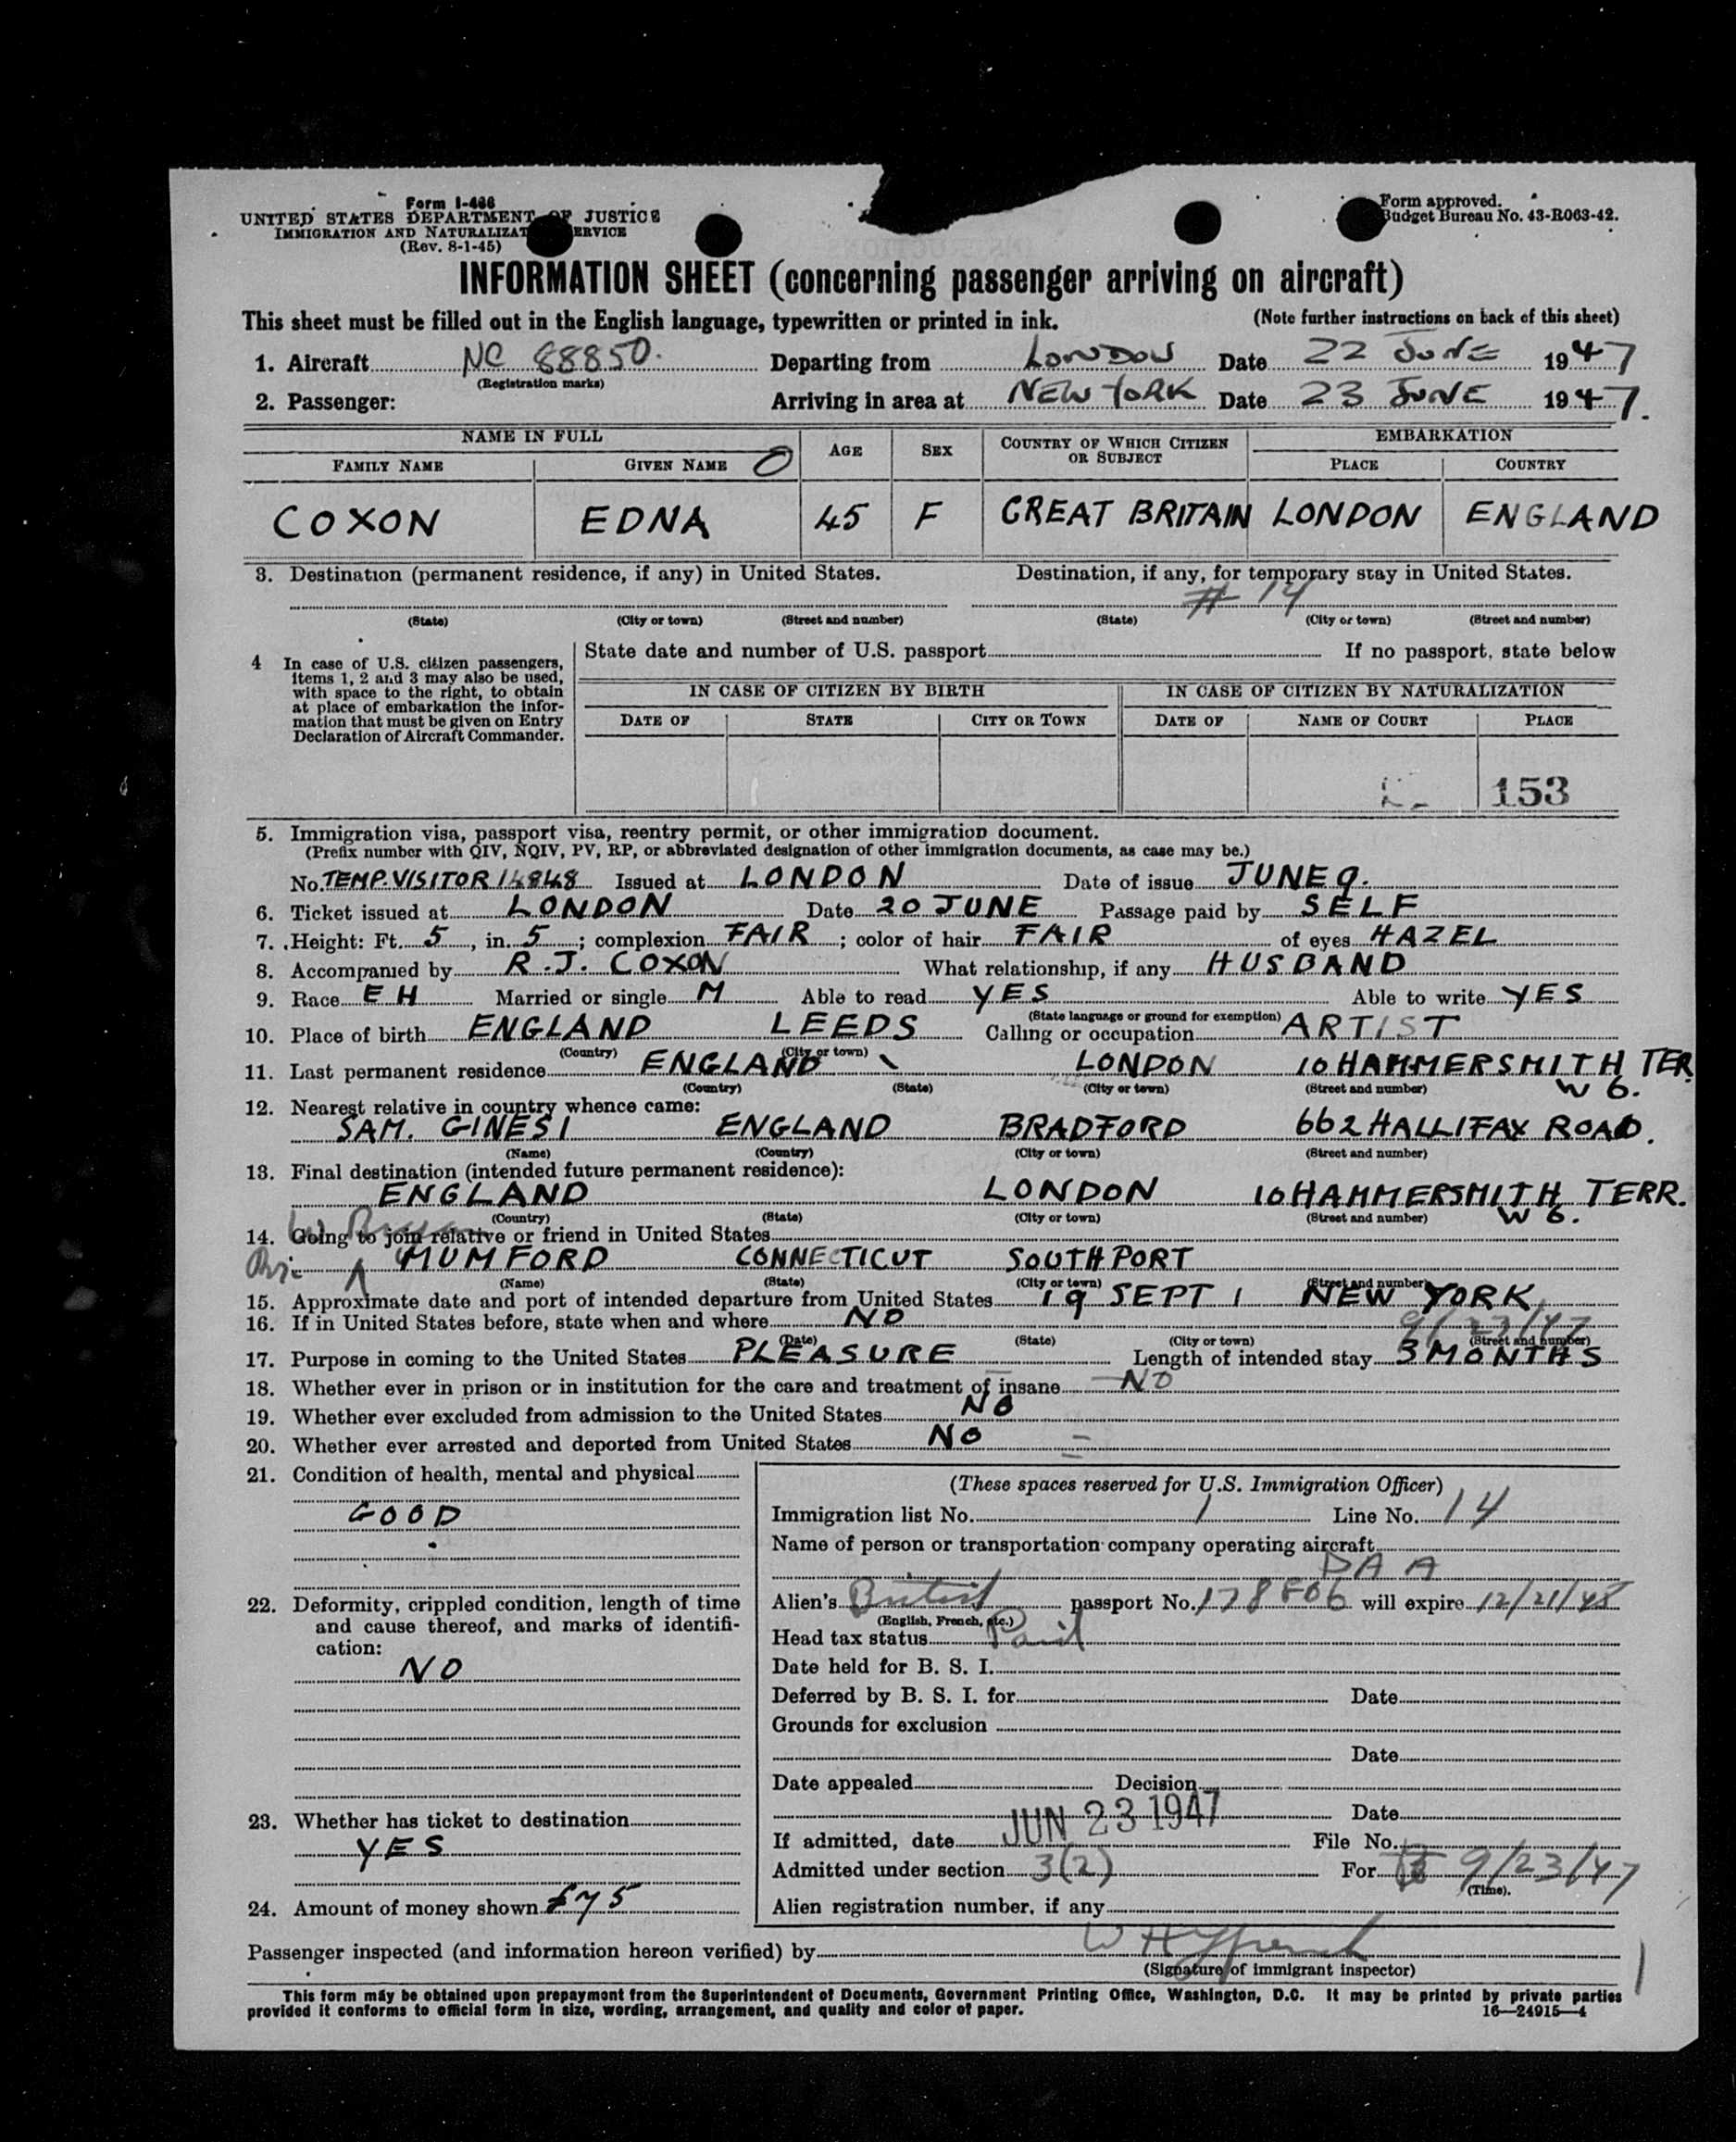 Form I-466
UNITED STATES DEPARTMENT OF JUSTICE
IMMIGRATION AND NATURALIZAT ERVICE
(Rev. 8-1-45)
Form approved.
Budget Bureau No. 43-R063-42.
INFORMATION SHEET (concerning passenger arriving on aircraft)
This sheet must be filled out in the English language, typewritten or printed in ink. (Note further instructions on back of this sheet)
1. Aircraft NC 88850. Departing from LONDON Date 22 JUNE 1947
(Registration marks)
2. Passenger: Arriving in area at NEW YORK Date 23 JUNE 1947.
NAME IN FULL AGE SEX COUNTRY OF WHICH CITIZEN OR SUBJECT EMBARKATION
FAMILY NAME GIVEN NAME PLACE COUNTRY
COXON EDNA 45 F GREAT BRITAIN LONDON ENGLAND
3. Destination (permanent residence, if any) in United States. Destination, if any, for temporary stay in United States.
# 14
(State) (City or town) (Street and number) (State) (City or town) (Street and number)
4 In case of U.S. citizen passengers, items 1, 2 and 3 may also be used, with space to the right, to obtain at place of embarkation the information that must be given on Entry Declaration of Aircraft Commander.
State date and number of U.S. passport If no passport, state below
IN CASE OF CITIZEN BY BIRTH IN CASE OF CITIZEN BY NATURALIZATION
DATE OF STATE CITY OR TOWN DATE OF NAME OF COURT PLACE
153
5. Immigration visa, passport visa, reentry permit, or other immigration document.
(Prefix number with QIV, NQIV, PV, RP, or abbreviated designation of other immigration documents, as case may be.)
No. TEMP. VISITOR 14848 Issued at LONDON Date of issue JUNE 9.
6. Ticket issued at LONDON Date 20 JUNE Passage paid by SELF
7. Height: Ft. 5, in. 5; complexion FAIR; color of hair FAIR of eyes HAZEL
8. Accompanied by R.J. COXON What relationship, if any HUSBAND
9. Race EH Married or single M Able to read YES Able to write YES
(State language or ground for exemption)
10. Place of birth ENGLAND LEEDS Calling or occupation ARTIST
(Country) (City or town)
11. Last permanent residence ENGLAND LONDON 10 HAMMERSMITH TER.
(Country) (State) (City or town) (Street and number) W 6.
12. Nearest relative in country whence came:
SAM. GINESI ENGLAND BRADFORD 662 HALLIFAX ROAD.
(Name) (Country) (City or town) (Street and number)
13. Final destination (intended future permanent residence):
ENGLAND LONDON 10 HAMMERSMITH TERR.
(Country) (State) (City or town) (Street and number) W 6.
14. Going to join relative or friend in United States
MUMFORD CONNECTICUT SOUTHPORT
(Name) (State) (City or town) (Street and number)
15. Approximate date and port of intended departure from United States 19 SEPT 1 NEW YORK
16. If in United States before, state when and where NO 9/23/47
(Date) (State) (City or town) (Street and number)
17. Purpose in coming to the United States PLEASURE Length of intended stay 3 MONTHS
18. Whether ever in prison or in institution for the care and treatment of insane NO
19. Whether ever excluded from admission to the United States NO
20. Whether ever arrested and deported from United States NO
21. Condition of health, mental and physical
GOOD
22. Deformity, crippled condition, length of time and cause thereof, and marks of identification:
NO
23. Whether has ticket to destination
YES
24. Amount of money shown £75
(These spaces reserved for U.S. Immigration Officer)
Immigration list No. 1 Line No. 14
Name of person or transportation company operating aircraft
PAA
Alien's British passport No. 178806 will expire 12/21/48
(English, French, etc.)
Head tax status Paid
Date held for B. S. I.
Deferred by B. S. I. for Date
Grounds for exclusion
Date
Date appealed Decision
Date
If admitted, date JUN 23 1947 File No.
Admitted under section 3(2) For 9/23/47
(Time).
Alien registration number, if any
Passenger inspected (and information hereon verified) by
(Signature of immigrant inspector)
This form may be obtained upon prepayment from the Superintendent of Documents, Government Printing Office, Washington, D.C. It may be printed by private parties
provided it conforms to official form in size, wording, arrangement, and quality and color of paper. 16—24915-4